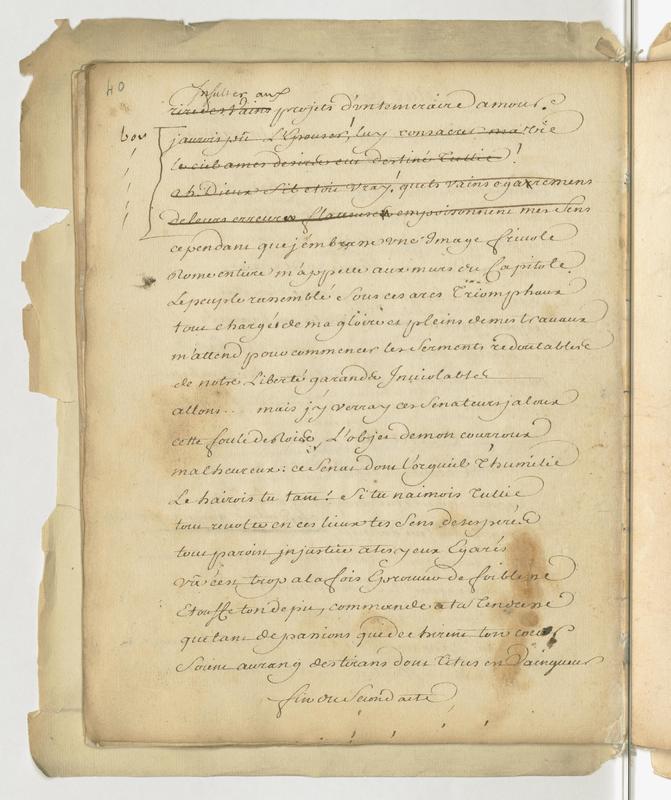 40
Insulter aux
rire des vains projets d'un temeraire amour.
bon
j'aurois pu L'Epouser, luy consacrer ma vie
le ciel a mes desirs eut destiné Tullie !
ah Dieux s'il etoit vray, quels vains egaremens
de leurs erreurs flateuses empoisonnent mes sens
cependant que j'embrasse une Image frivole
Rome entiere m'appelle aux murs du Capitole.
Le peuple rassemblé sous ces arcs Triomphaux
tout chargés de ma gloire et pleins de mes travaux
m'attend pour commencer les serments redoutables
de notre Liberté garands Inviolables
allons... mais j'y verray ces senateurs jaloux
cette foule de Rois, L'objet de mon courroux
malheureux : ce senat dont l'orgueil t'humilie
Le hairois tu tant ? si tu n'aimois Tullie
tout revolte en ces lieux tes sens desesperés
tout paroist injustice a tes yeux Egarés
va c'en trop a la fois Eprouver de foiblesse
Etouffe ton depit, commande a ta Tendresse
que tant de passions qui dechirent ton coeur
soient au rang des tirans dont Titus est Vainqueur
fin du second acte